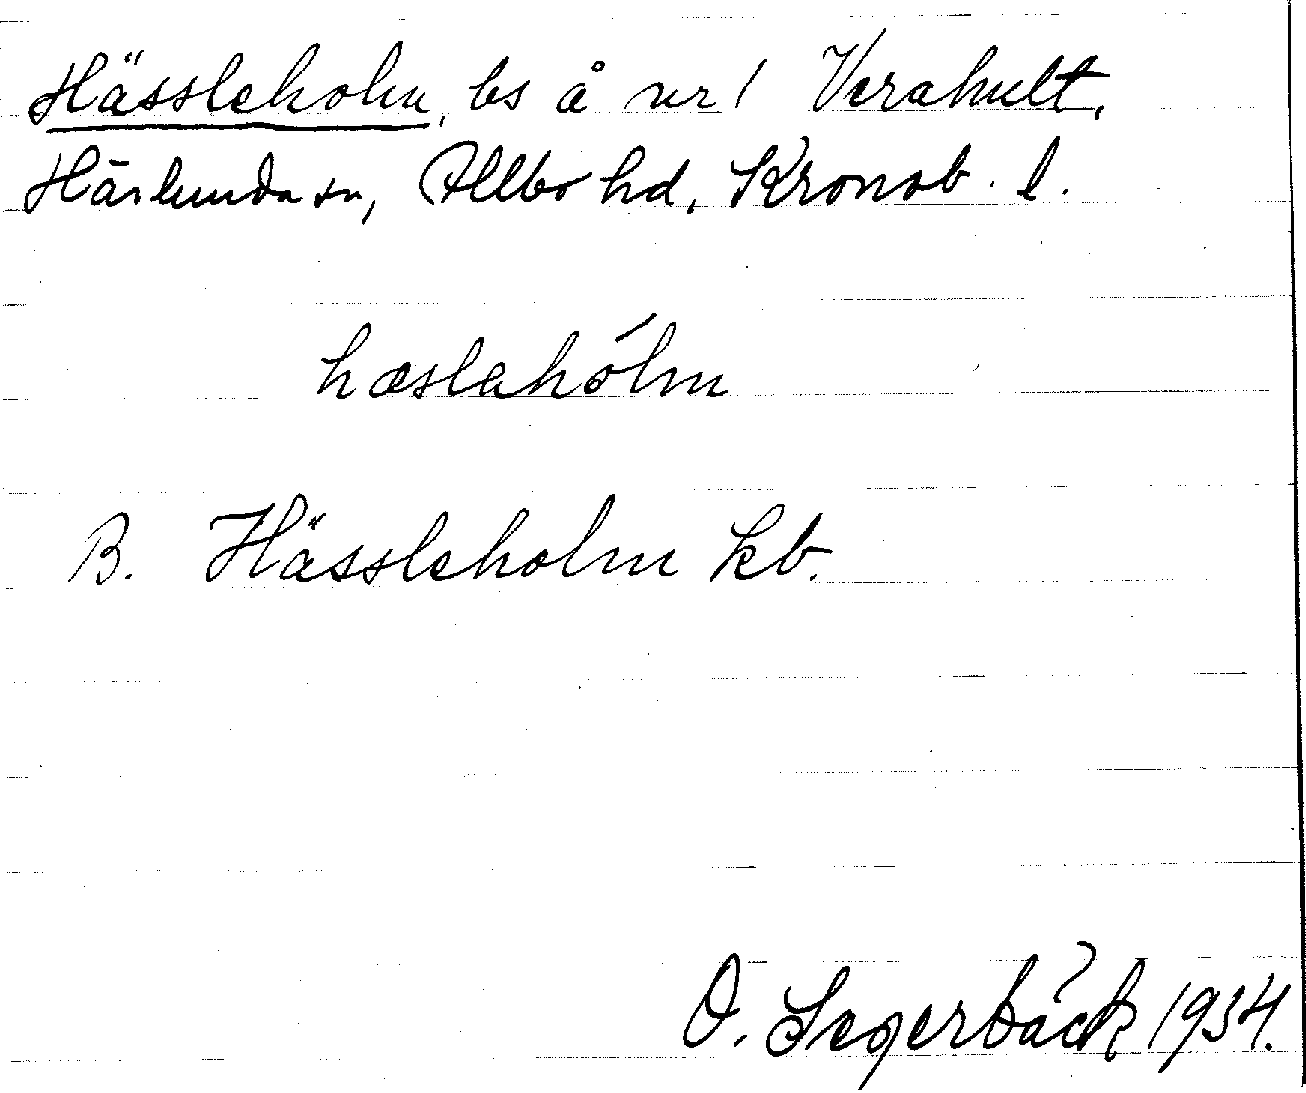 Hässleholm, bs å nr 1 Verahult,
Härlunda sn, Allbo hd, Kronob. l.
hæslahólm
B. Hässleholm kb.
O. Segerbäck 1934.